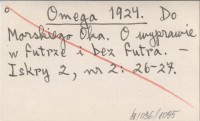 Omega 1924. Do
Morskiego Oka. O wyprawie
w futrze i bez futra. –
Iskry 2, nr 2: 26-27.